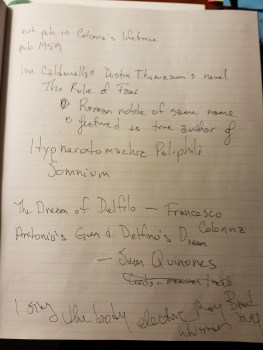 not pub in Colonna's lifetime
pub 1959
Ian Caldwell & Dustin Thomason's novel
The Rule of Four
Roman noble of same name
is featured as true author of
Hypnerotomachia Poliphili
Somnium
The Dream of Delfilo - Francesco
Colonna
Antonio's Gun & Delfino's Dream
- Sam Quinones
I sing the body electric Ray Brad
Whitman